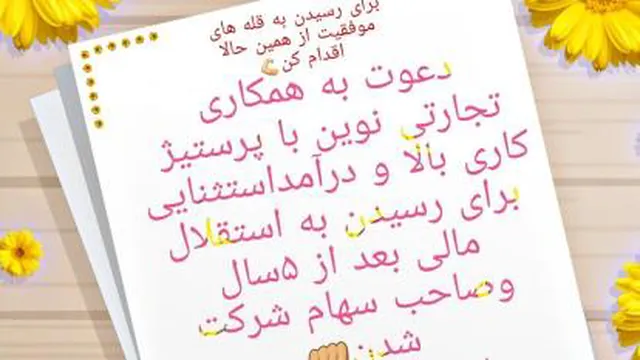 برای رسیدن به قله های
موفقیت از همین حالا
اقدام کن💪
دعوت به همکاری
تجارتی نوین با پرستیژ
کاری بالا و درآمداستثنایی
برای رسیدن به استقلال
مالی بعد از ۵سال
وصاحب سهام شرکت
شدن👊